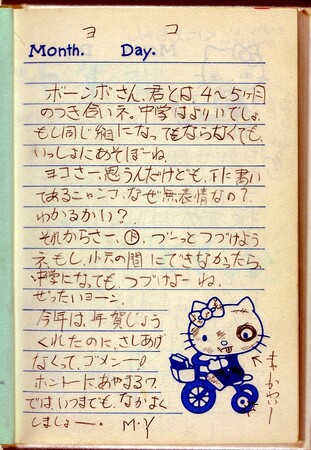 ヨ コ
Month. Day.
ボーンボさん、君とは、4〜5ヶ月
のつき合いネ。中学はよりいでしょ
もし同じ組になってもならなくても、
いっしょにあそぼーね。
ヨコさー、思うんだけども、下に書い
てあるニャンコ、なぜ無表情なの?
わかるかい?
それからさー、ずーっとつづけよう
ネ。もし、小六の間にできなかったら、
中学になっても、つづけよーね。
ぜったいヨーン。
今年は、年賀じょう
くれたのに、さしあげ
なくって、ゴメンー!
ホントーに、あやまるワ
では、いつまでも、なかよく
しましょー。 M.Y